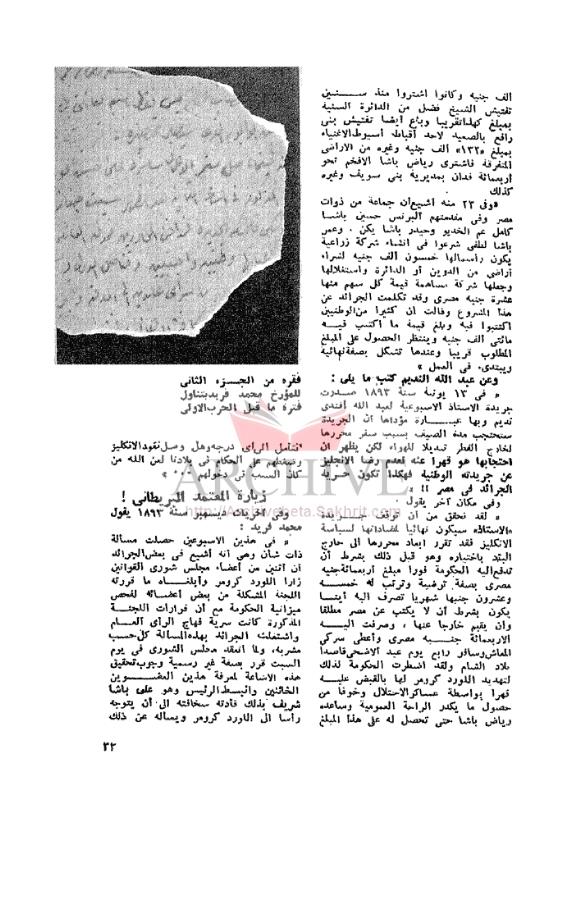 الف جنيه وكانوا اشتروا منذ سنتين
تفتيش الشيخ فضل من الدائرة السنية
بمبلغ كهذا تقريبا وباع أيضا تفتيش بنى
رافع بالصعيد لاحد أقباط أسيوط الاغنياء
بمبلغ «١٣٢» ألف جنيه وغيره من الاراضى
المتفرقة فاشترى رياض باشا الافخم نحو
أربعمائة فدان بمديرية بنى سويف وغيره
كذلك
«وفى ٢٣ منه أشيع أن جماعة من ذوات
مصر وفى مقدمتهم البرنس حسين باشا
كامل عم الخديو وحيدر باشا يكن . وعمر
باشا لطفى شرعوا فى انشاء شركة زراعية
يكون رأسمالها خمسون ألف جنيه لشراء
أراضى من الدوين أو الدائرة واستغلالها
وجعلها شركة مساهمة قيمة كل سهم منها
عشرة جنيه مصرى وقد تكلمت الجرائد عن
هذا المشروع وقالت ان كثيرا من الوطنيين
اكتتبوا فيه وبلغ قيمة ما اكتتب فيه
مائتى ألف جنيه وينتظر الحصول على المبلغ
المطلوب قريبا وعندها تشكل بصفة نهائية
ويبتدىء فى العمل »
وعن عبد الله النديم كتب ما يلى :
« فى ١٣ يونية سنة ١٨٩٣ صدرت
جريدة الاستاذ الاسبوعية لعبد الله أفندى
نديم وبها عبارة مؤداها أن الجريدة
ستحتجب مدة الصيف بسبب سفر محررها
لخارج القطر تبديلا للهواء لكن يظهر أن
احتجابها هو قهرا عنه لعدم رضا الانجليز
عن جريدته الوطنية فهكذا تكون حرية
الجرائد فى مصر !! »
وفى مكان آخر يقول .
« لقد تحقق من أن توقف جريدة
«الاستاذ» سيكون نهائيا لمضاداتها لسياسة
الانكليز فقد تقرر ابعاد محررها الى خارج
البلد باختياره وهو قبل ذلك بشرط أن
تدفع اليه الحكومة فورا مبلغ أربعمائة جنيه
مصرى بصفة ترضية وترتب له خمسة
وعشرون جنيها شهريا تصرف اليه أينما
يكون بشرط أن لا يكتب عن مصر مطلقا
وأن يقيم خارجا عنها ، وصرفت اليه
الاربعمائة جنيه مصرى وأعطى سركى
المعاش وسافر رابع يوم عيد الاضحى قاصدا
بلاد الشام ولقد اضطرت الحكومة لذلك
لتهديد اللورد كرومر لها بالقبض عليه
قهرا بواسطة عساكر الاحتلال وخوفا من
حصول ما يكدر الراحة العمومية وساعده
رياض باشا حتى تحصل له على هذا المبلغ
فقرة من الجزء الثانى
للمؤرخ محمد فريد بتناول
فترة ما قبل الحرب الاولى
فتأمل الى أى درجة وهل وصل نفوذ الانكليز
وضغطهم على الحكام فى بلادنا لعن الله من
كان السبب فى دخولهم »
زيارة المعتمد البريطانى !
وفى أخريات ديسمبر سنة ١٨٩٣ يقول
محمد فريد :
« فى هذين الاسبوعين حصلت مسألة
ذات شأن وهى أنه أشيع فى بعض الجرائد
أن اثنين من أعضاء مجلس شورى القوانين
زارا اللورد كرومر وأبلغاه ما قررته
اللجنة المشكلة من بعض أعضائه لفحص
ميزانية الحكومة مع أن قرارات اللجنة
المذكورة كانت سرية فهاج الرأى العام
واشتغلت الجرائد بهذه المسألة كل حسب
مشربه ، ولما انعقد مجلس الشورى فى يوم
السبت قرر بصفة غير رسمية وجوب تحقيق
هذه الاشاعة لمعرفة هذين العضوين
الخائنين وانبسط الرئيس وهو على باشا
شريف بذلك قادته سخافته الى أن يتوجه
رأسا الى اللورد كرومر ويسأله عن ذلك
٣٣
ARCHIVE
http://Archivebeta.Sakhrit.com